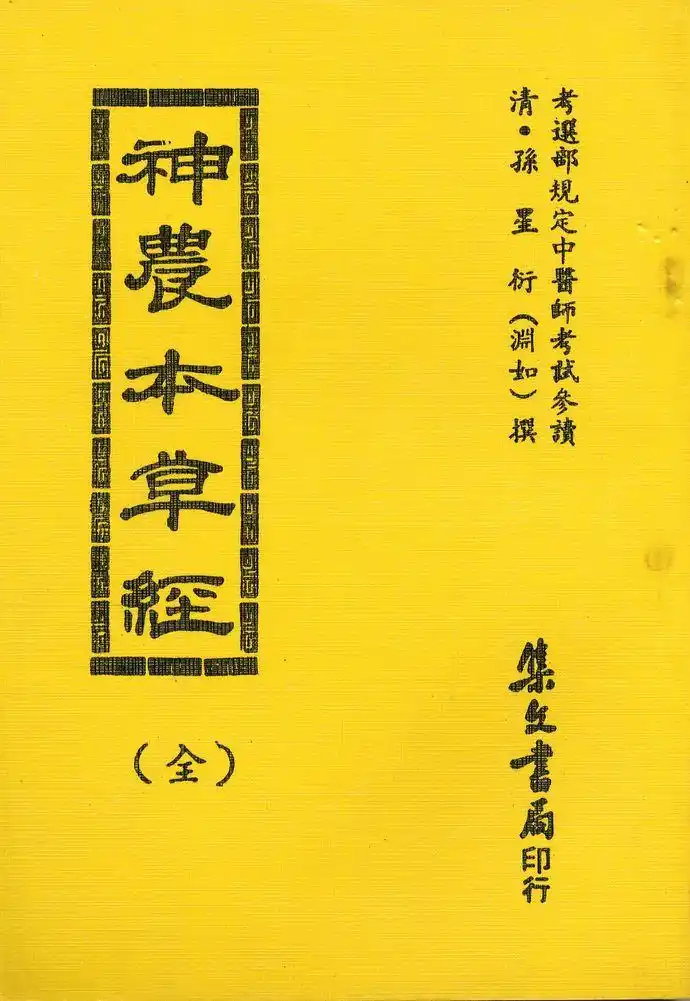 考選部規定中醫師考試參讀
清·孫星衍(淵如)撰
神農本草經
(全)
集文書局印行